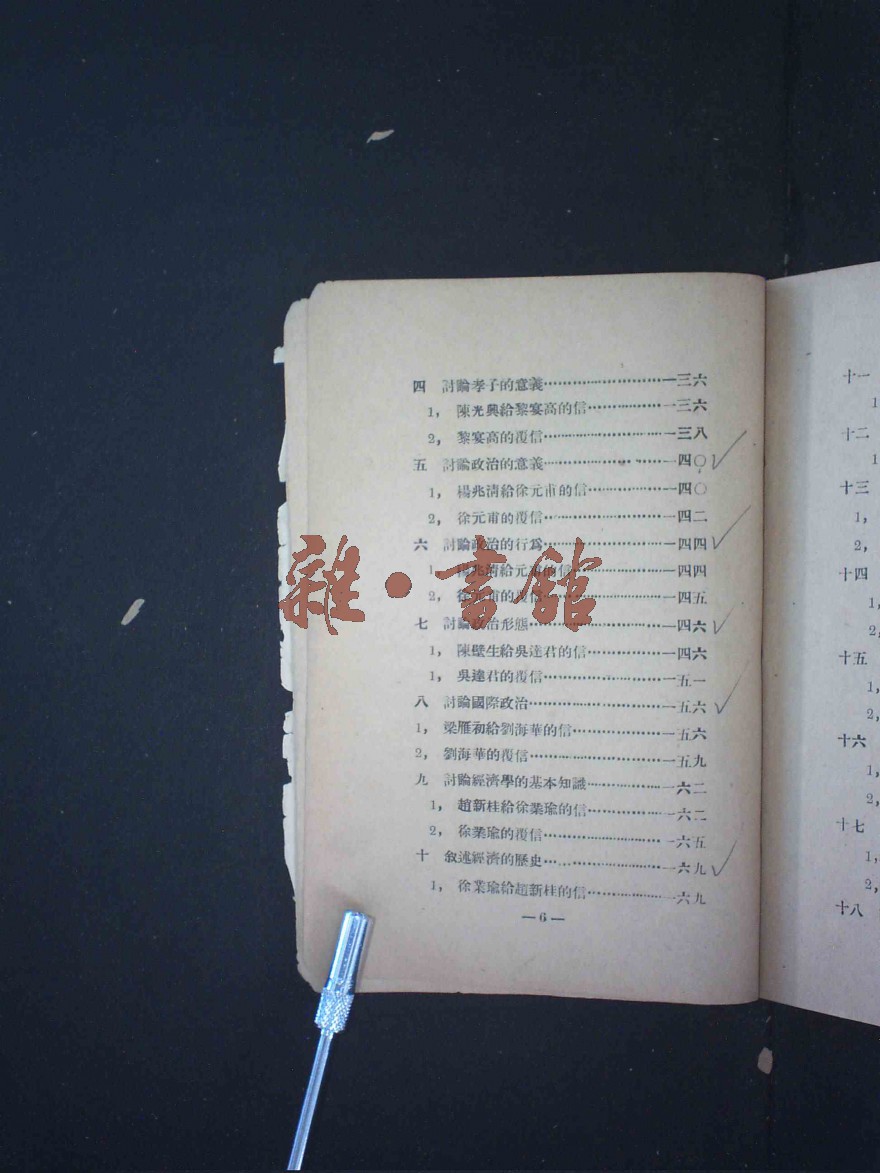 四 討論孝子的意義……………………一三六
1, 陳光興給黎宴高的信……………一三六
2, 黎宴高的覆信……………………一三八
五 討論政治的意義……………………一四〇
1, 楊兆清給徐元甫的信……………一四〇
2, 徐元甫的覆信……………………一四二
六 討論政治的行爲……………………一四四
1, 楊兆清給元甫的信………………一四四
2, 徐元甫的覆信……………………一四五
七 討論政治形態………………………一四六
1, 陳壁生給吳達君的信……………一四六
1, 吳達君的覆信……………………一五一
八 討論國際政治………………………一五六
1, 梁雁初給劉海華的信……………一五六
2, 劉海華的覆信……………………一五九
九 討論經濟學的基本知識……………一六二
1, 趙新桂給徐業瑜的信……………一六二
2, 徐業瑜的覆信……………………一六五
十 叙述經濟的歷史……………………一六九
1, 徐業瑜給趙新桂的信……………一六九
—6—
十一
1
十二
1
十三
1,
2,
十四
1,
2,
十五
1,
2,
十六
1,
2,
十七
1,
2,
十八
雜·書館